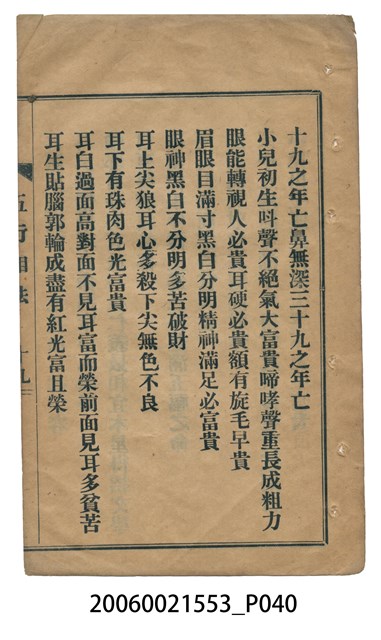 十九之年亡鼻無深三十九之年亡
小兒初生呌聲不絕氣大富貴啼哮聲重長成粗力
眼能轉視人必貴耳硬必貴額有旋毛早貴
眉眼目滿寸黑白分明精神滿足必富貴
眼神黑白不分明多苦破財
耳上尖狼耳心多殺下尖無色不良
耳下有珠肉色光富貴
耳白過面高對面不見耳富而榮前面見耳多貧苦
耳生貼腦郭輪成盡有紅光富且榮
五行相法 十九
20060021553_P040